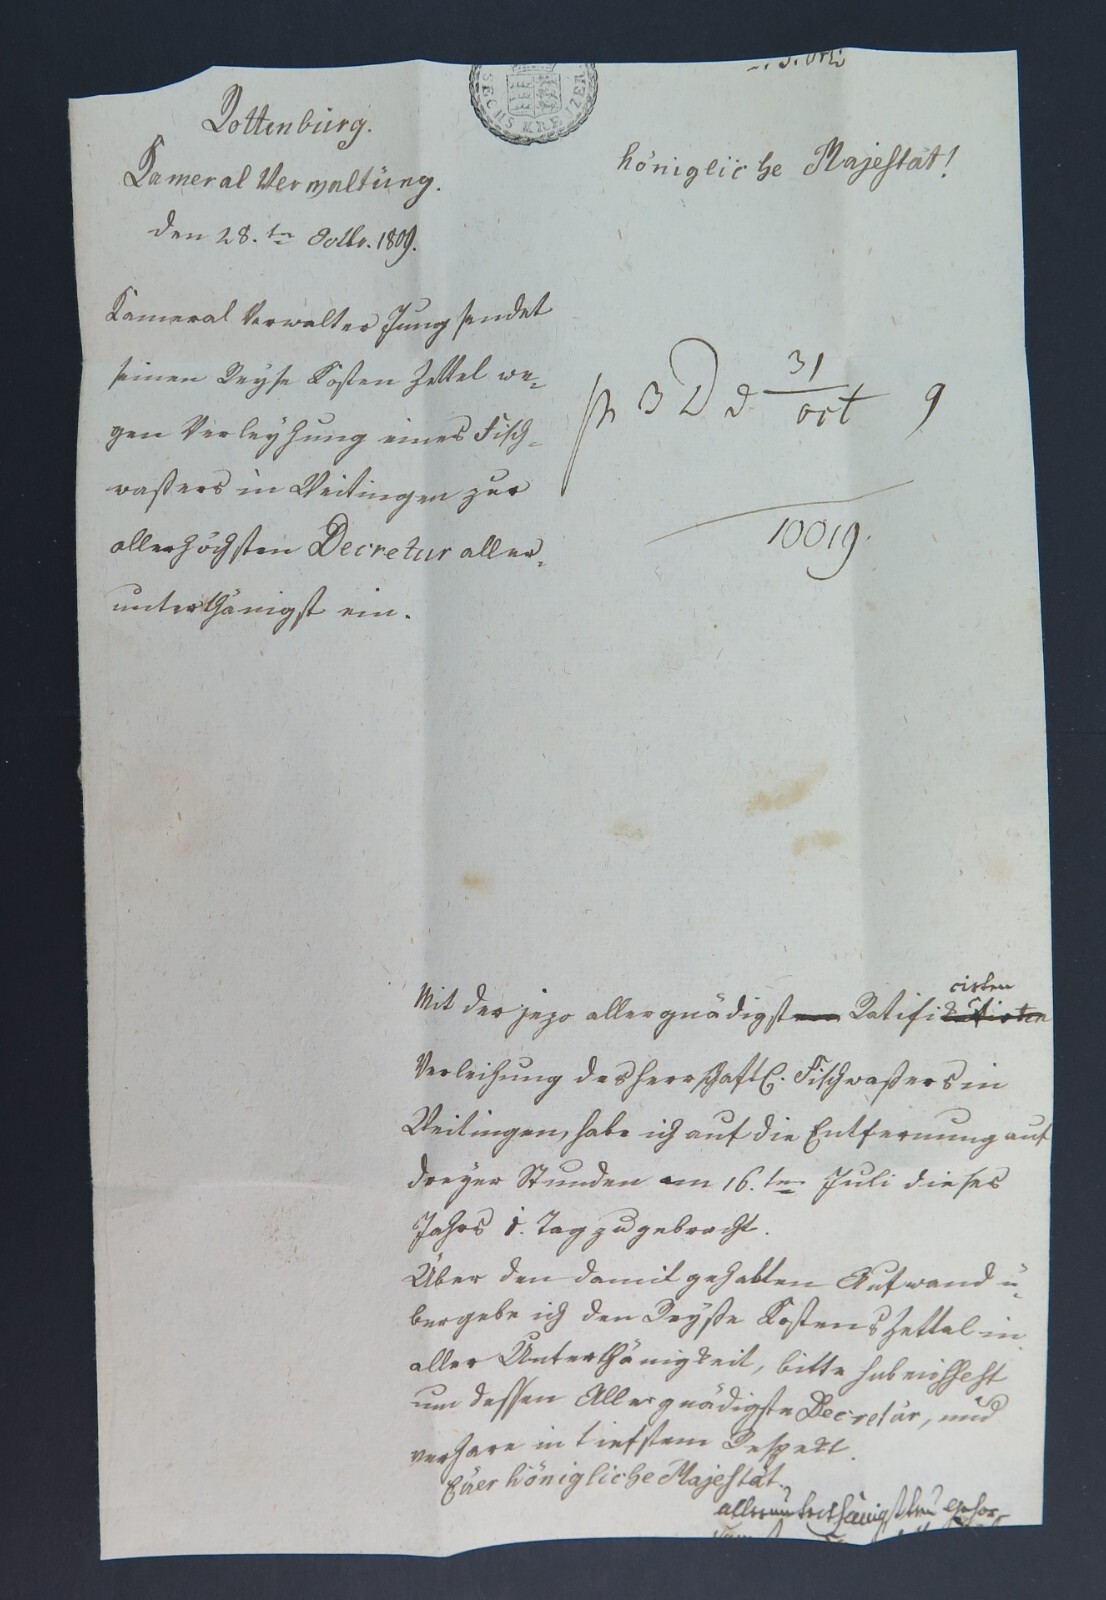 SECHS KREUZER.
Rottenburg.
Kameral Verwaltung.
den 28.ten Octbr. 1809.
Königliche Majestät!
Kameral Verwalter Jung sendet
seinen Reyse Kosten Zettel we-
gen Verleyhung eines Fisch-
waßers in Weitingen zur
allerhöchsten Decretur aller-
unterthänigst ein.
31
oct 9
10019.
Mit der jezo allergnädigst Ratifi cirten
Verleihung des herrschaftl. Fischwaßers in
Weitingen, habe ich auf die Entfernung auf
dreyer Stunden am 16.ten Juli dieses
Jahrs 1. Tag zugebracht.
Über den damit gehabten Aufwand ü-
bergebe ich den Reyße Kostens Zettel in
aller Unterthänigkeit, bitte submissest
um dessen Allergnädigste Decretur, und
verhare in tiefstem Respekt.
Euer Königliche Majestät.
allerunterthänigst treu gehor-